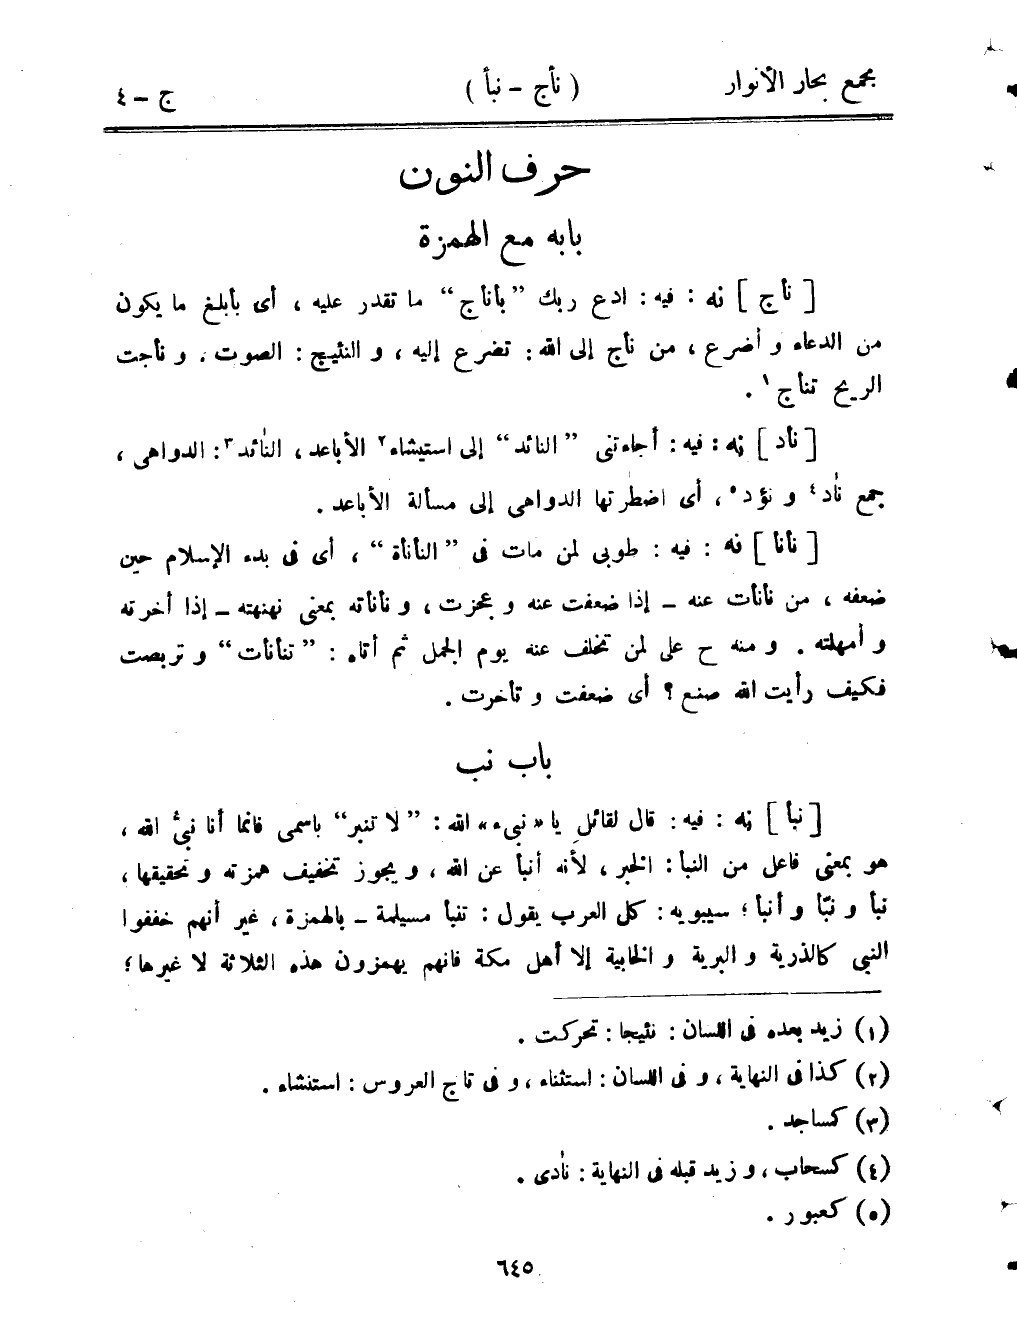 مجمع بحار الأنوار (نأج - نبأ) ج - ٤
حرف النون
بابه مع الهمزة
[نأج] نه: فيه: ادع ربك "بأنأج" ما تقدر عليه، أى بأبلغ ما يكون
من الدعاء و أضرع، من نأج إلى الله: تضرع إليه، و النئيج: الصوت. و نأجت
الريح تنأج١.
[نأد] نه: فيه: أجاءتنى "النائد" إلى استيشاء٢ الأباعد، النآئد٣: الدواهى،
جمع نآد٤ و نؤد٥، أى اضطرتها الدواهى إلى مسألة الأباعد.
[نأنأ] نه: فيه: طوبى لمن مات فى "النأنأة"، أى فى بدء الإسلام حين
ضعفه، من نأنأت عنه - إذا ضعفت عنه و عجزت، و نأنأته بمعنى نهنهته - إذا أخرته
و أمهلته. و منه ح على لمن تخلف عنه يوم الجمل ثم أتاه: "تنأنأت" و تربصت
فكيف رأيت الله صنع؟ أى ضعفت و تأخرت.
باب نب
[نبأ] نه: فيه: قال لقائل يا «نبىء» الله: "لا تنبر" باسمى فانما أنا نبىُّ الله،
هو بمعنى فاعل من النبأ: الخبر، لأنه أنبأ عن الله، و يجوز تخفيف همزته و تحقيقها،
نبأ و نبّأ و أنبأ؛ سيبويه: كل العرب يقول: تنبأ مسيلمة - بالهمزة، غير أنهم خففوا
النبى كالذرية و البرية و الخابية إلا أهل مكة فانهم يهمزون هذه الثلاثة لا غيرها؛
(١) زيد بعده فى اللسان: نئيجا: تحركت.
(٢) كذا فى النهاية، و فى اللسان: استثناء، و فى تاج العروس: استنشاء.
(٣) كساجد.
(٤) كسحاب، و زيد قبله فى النهاية: نآدى.
(٥) كعبور.
٦٤٥